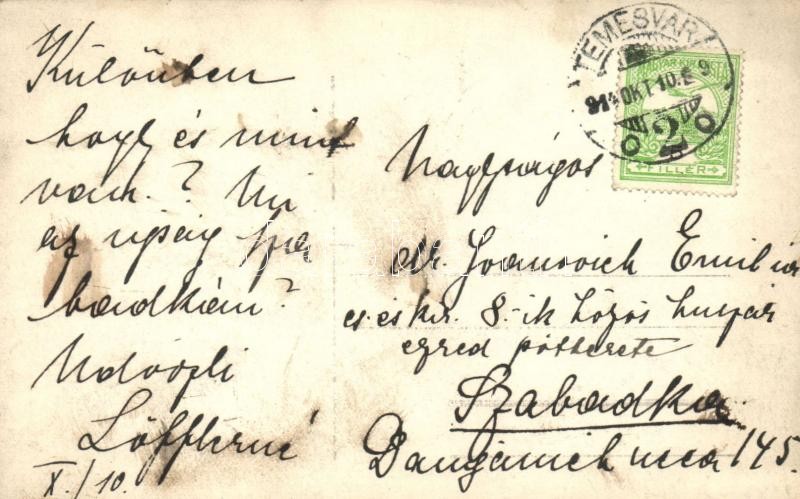 Különben
hogy és mint
van? Mi
az ujság Sza
badkán?
Üdvözli
Löfflerné
X./10.
TEMESVÁR
914 OKT.10.E 9
MAGYAR KIR. POSTA
2
FILLÉR
Nagyságos
dr. Ivanovich Emil
cs. és kir. 8.-ik közös huszár
ezred póttiszte
Szabadka
Damjanich ucca 145.